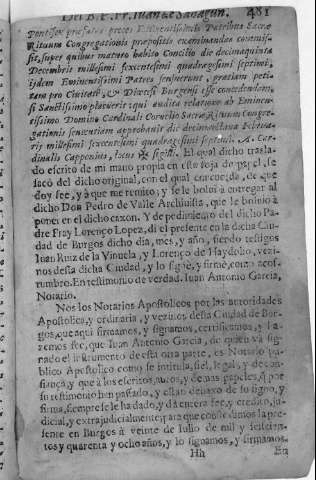 Del B. P. Fr. Iuan de Sahagun. 481
Pontifex praefatas preces Eminentissimis Patribus Sacrae
Rituum Congregationis praepositis examinandas commiss-
sit, super quibus maturo habito Concilio die decimaquinta
Decembris millesimi sexcentesimi quadragesimi septimi,
ijdem Eminentissimi Patres censuerunt, gratiam petitam
pro Civitate, & Diœcesi Burgensi esse concedendam,
si Sanctissimo placuerit: qui audita relatione ab Eminen-
tissimo Domino Cardinali Cornelio Sacrae Rituum Congre-
gationis sententiam approbavit die decimaoctava Februa-
rij millesimi sexcentesimi quadragesimi septimi. A. Car-
dinalis Capponius, locus ✠ sigilli. El qual dicho trasla-
do escrito de mi mano propia en esta foja de papel, se
sacò del dicho original, con el qual concuerda, de que
doy fee, y à que me remito, y se le bolvi à entregar al
dicho Don Pedro de Valle Archivista, que le bolviò à
poner en el dicho caxon. Y de pedimiento del dicho Pa-
dre Fray Lorenço Lopez, di el presente en la dicha Ciu-
dad de Burgos dicho dia, mes, y año, siendo testigos
Iuan Ruiz de la Vinuela, y Lorenço de Haydobo, vezi-
nos desta dicha Ciudad, y lo signè, y firmè, como acos-
tumbro. En testimonio de verdad. Iuan Antonio Garcia,
Notario.
Nos los Notarios Apostolicos por las autoridades
Apostolica, y ordinaria, y vezinos desta Ciudad de Bur-
gos, que aqui firmamos, y signamos, certificamos, y ha-
zemos fee, que Iuan Antonio Garcia, de quien và sig-
nado el instrumento de esta otra parte, es Notario pu-
blico Apostolico como se intitula, fiel, legal, y de con-
fiança, y que à los escritos, autos, y demas papeles, q por
su testimonio han passado, y estàn debaxo de su signo, y
firma, siempre se le ha dado, y dà entera fee, y credito, ju-
dicial, y extrajudicialmente; para que conste dimos la pre-
sente en Burgos à veinte de Iulio de mil y seiscien-
tos y quarenta y ocho años, y lo signamos, y firmamos.
Hh En